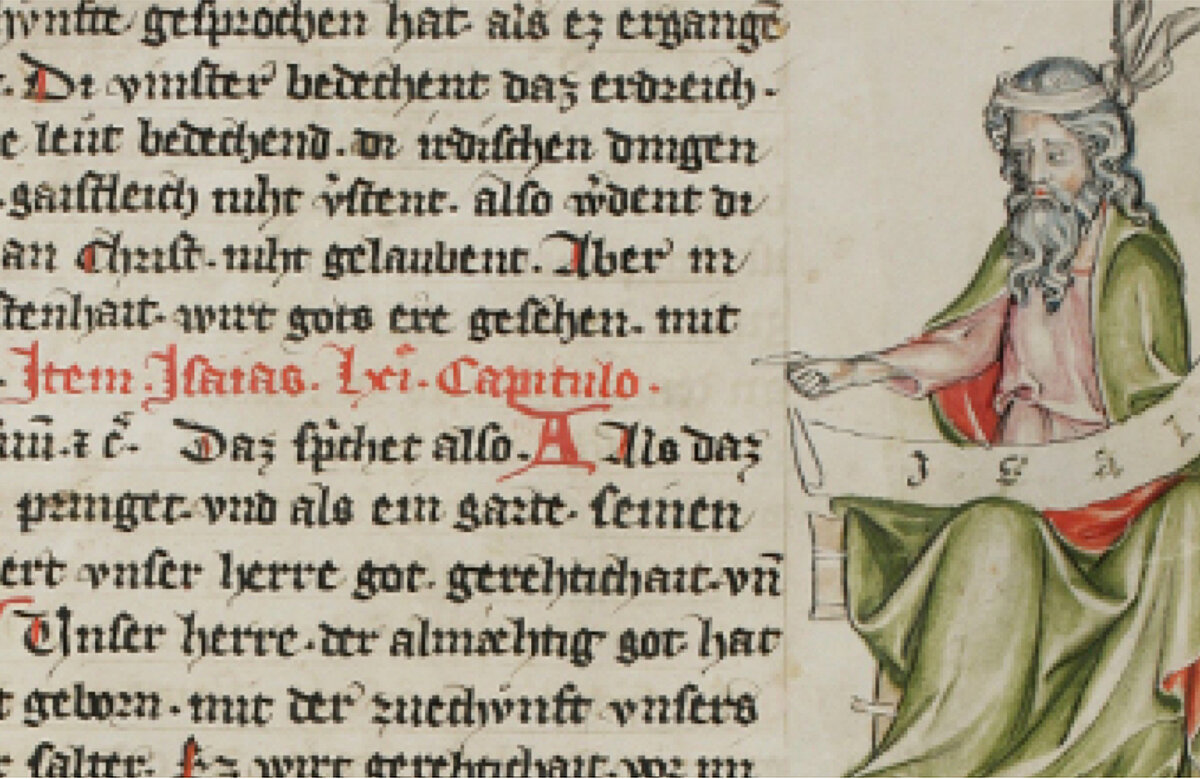 chvnfte gesprochen hat. als ez ergangē
. Di vinster bedechent daz erdreich.
e leut bedechend. di irdischen dingen
. gaistleich niht v̓stent. also w̓dent di
an Christ. niht gelaubent. Aber in
stenhait. wirt gots ere gesehen. mit
. Item. Isaias. Lxi̊. Capitulo.
Daz sp̓chet also. A Als daz
pringet. vnd als ein garte. seinen
ert vnser herre got. gerehtichait. vn̄
Vnser herre. der almæhtig got. hat
t geborn. mit der zuechvnft vnsers
salter. Ez wirt gerehtichait.
Isai